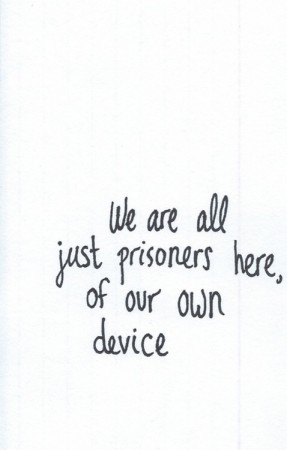 We are all
just prisoners here,
of our own
device